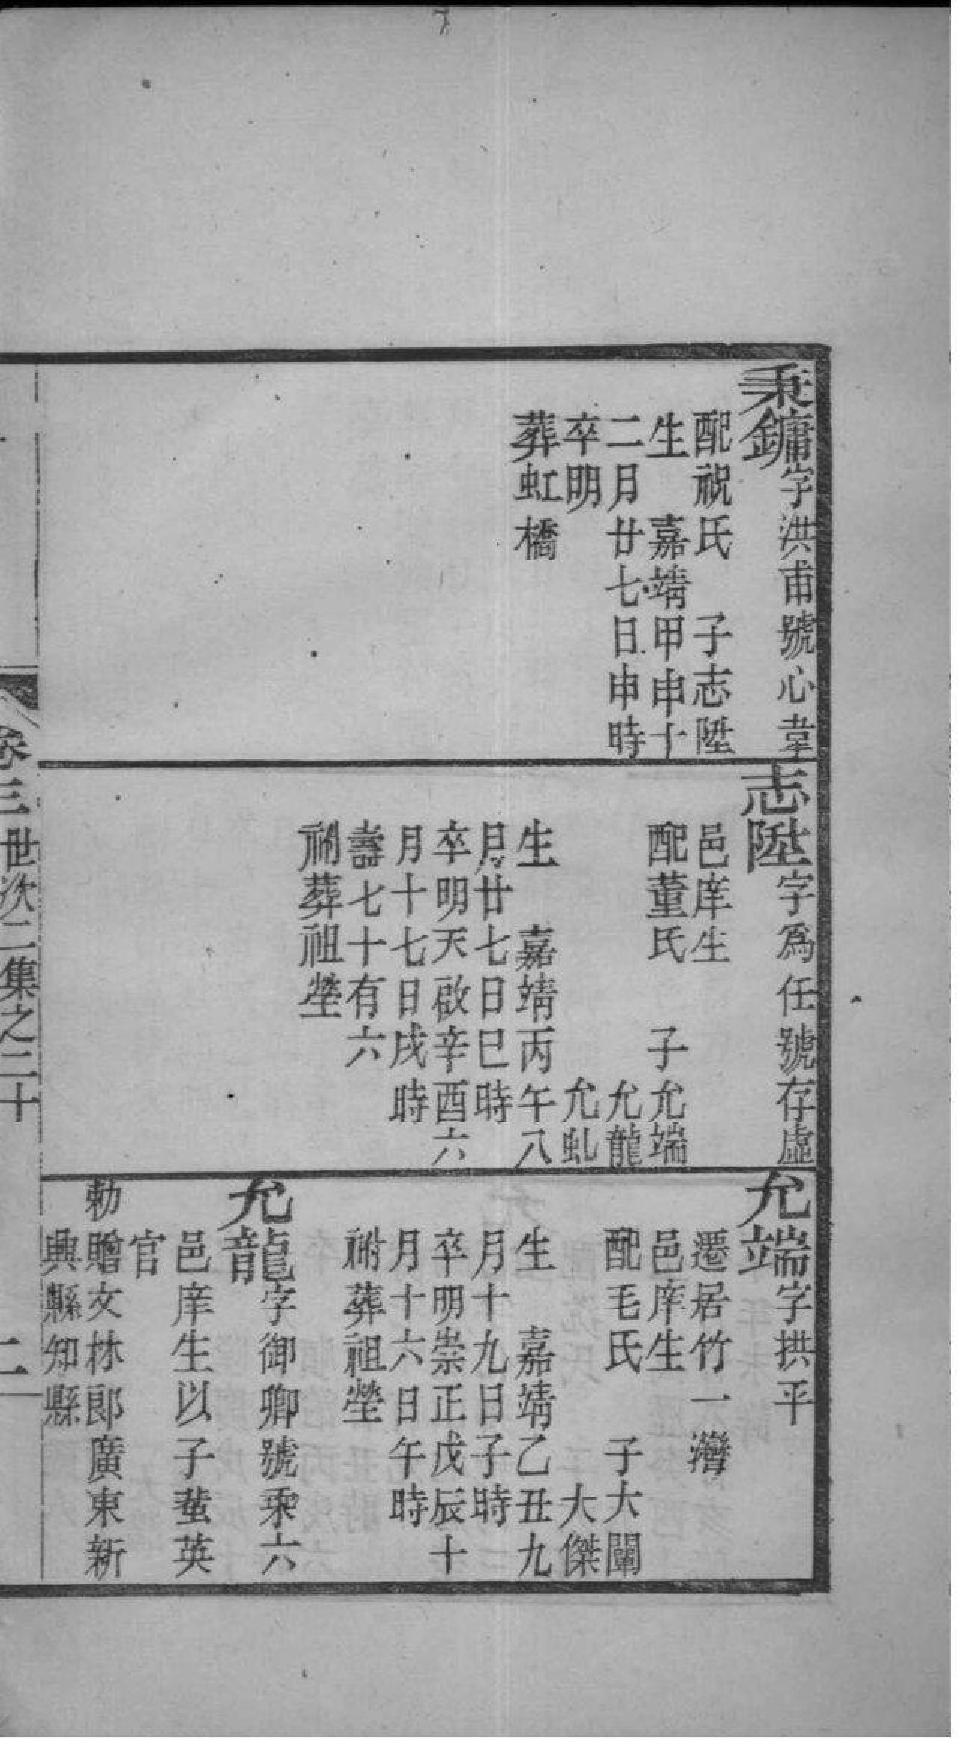 秉鏞字洪甫號心葦
配祝氏 子志陞
生 嘉靖甲申十
二月廿七日申時
卒明
葬虹橋
志陞字爲任號存虛
邑庠生
配董氏 子允端
允龍
允虬
生 嘉靖丙午八
月廿七日巳時
卒明天啟辛酉六
月十七日戌時
壽七十有六
祔葬祖塋
允端字拱平
遷居竹一灣
邑庠生
配毛氏 子大闡
大傑
生 嘉靖乙丑九
月十九日子時
卒明崇正戊辰十
月十六日午時
祔葬祖塋
允龍字御卿號乘六
邑庠生以子蜚英
官
勅贈文林郎廣東新
興縣知縣
卷三世次二集之二十
二